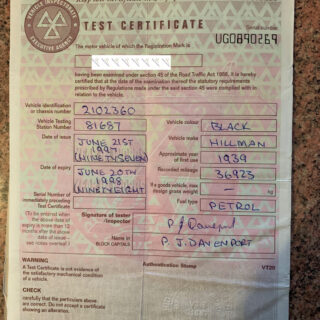 VEHICLE INSPECTORATE
EXECUTIVE AGENCY
TEST CERTIFICATE
Serial number
UG0890269
The motor vehicle of which the Registration Mark is
having been examined under section 45 of the Road Traffic Act 1988, it is hereby
certified that at the date of the examination thereof the statutory requirements
prescribed by Regulations made under the said section 45 were complied with in
relation to the vehicle.
Vehicle identification
or chassis number
2102360
Vehicle Testing
Station Number
81687
Vehicle colour
BLACK
Date of issue
JUNE 21ST
1997
(NINETYSEVEN)
Vehicle make
HILLMAN
Approximate year
of first use
1939
Date of expiry
JUNE 20TH
1998
(NINETYEIGHT)
Recorded mileage
36923
If a goods vehicle, max
design gross weight
—
Serial Number of
immediately preceding
Test Certificate
Fuel type
PETROL
(To be entered when
the above date of
expiry is more than 12
months after the
above date of issue—
see notes overleaf)
Signature of tester
/inspector
P J Davenport
Name in
BLOCK CAPITALS
P. J. DAVENPORT
WARNING
A Test Certificate is not evidence of
the satisfactory mechanical condition
of a vehicle.
Authentication Stamp
VT20
CHECK
carefully that the particulars above
are correct. Do not accept a certificate
showing an alteration.